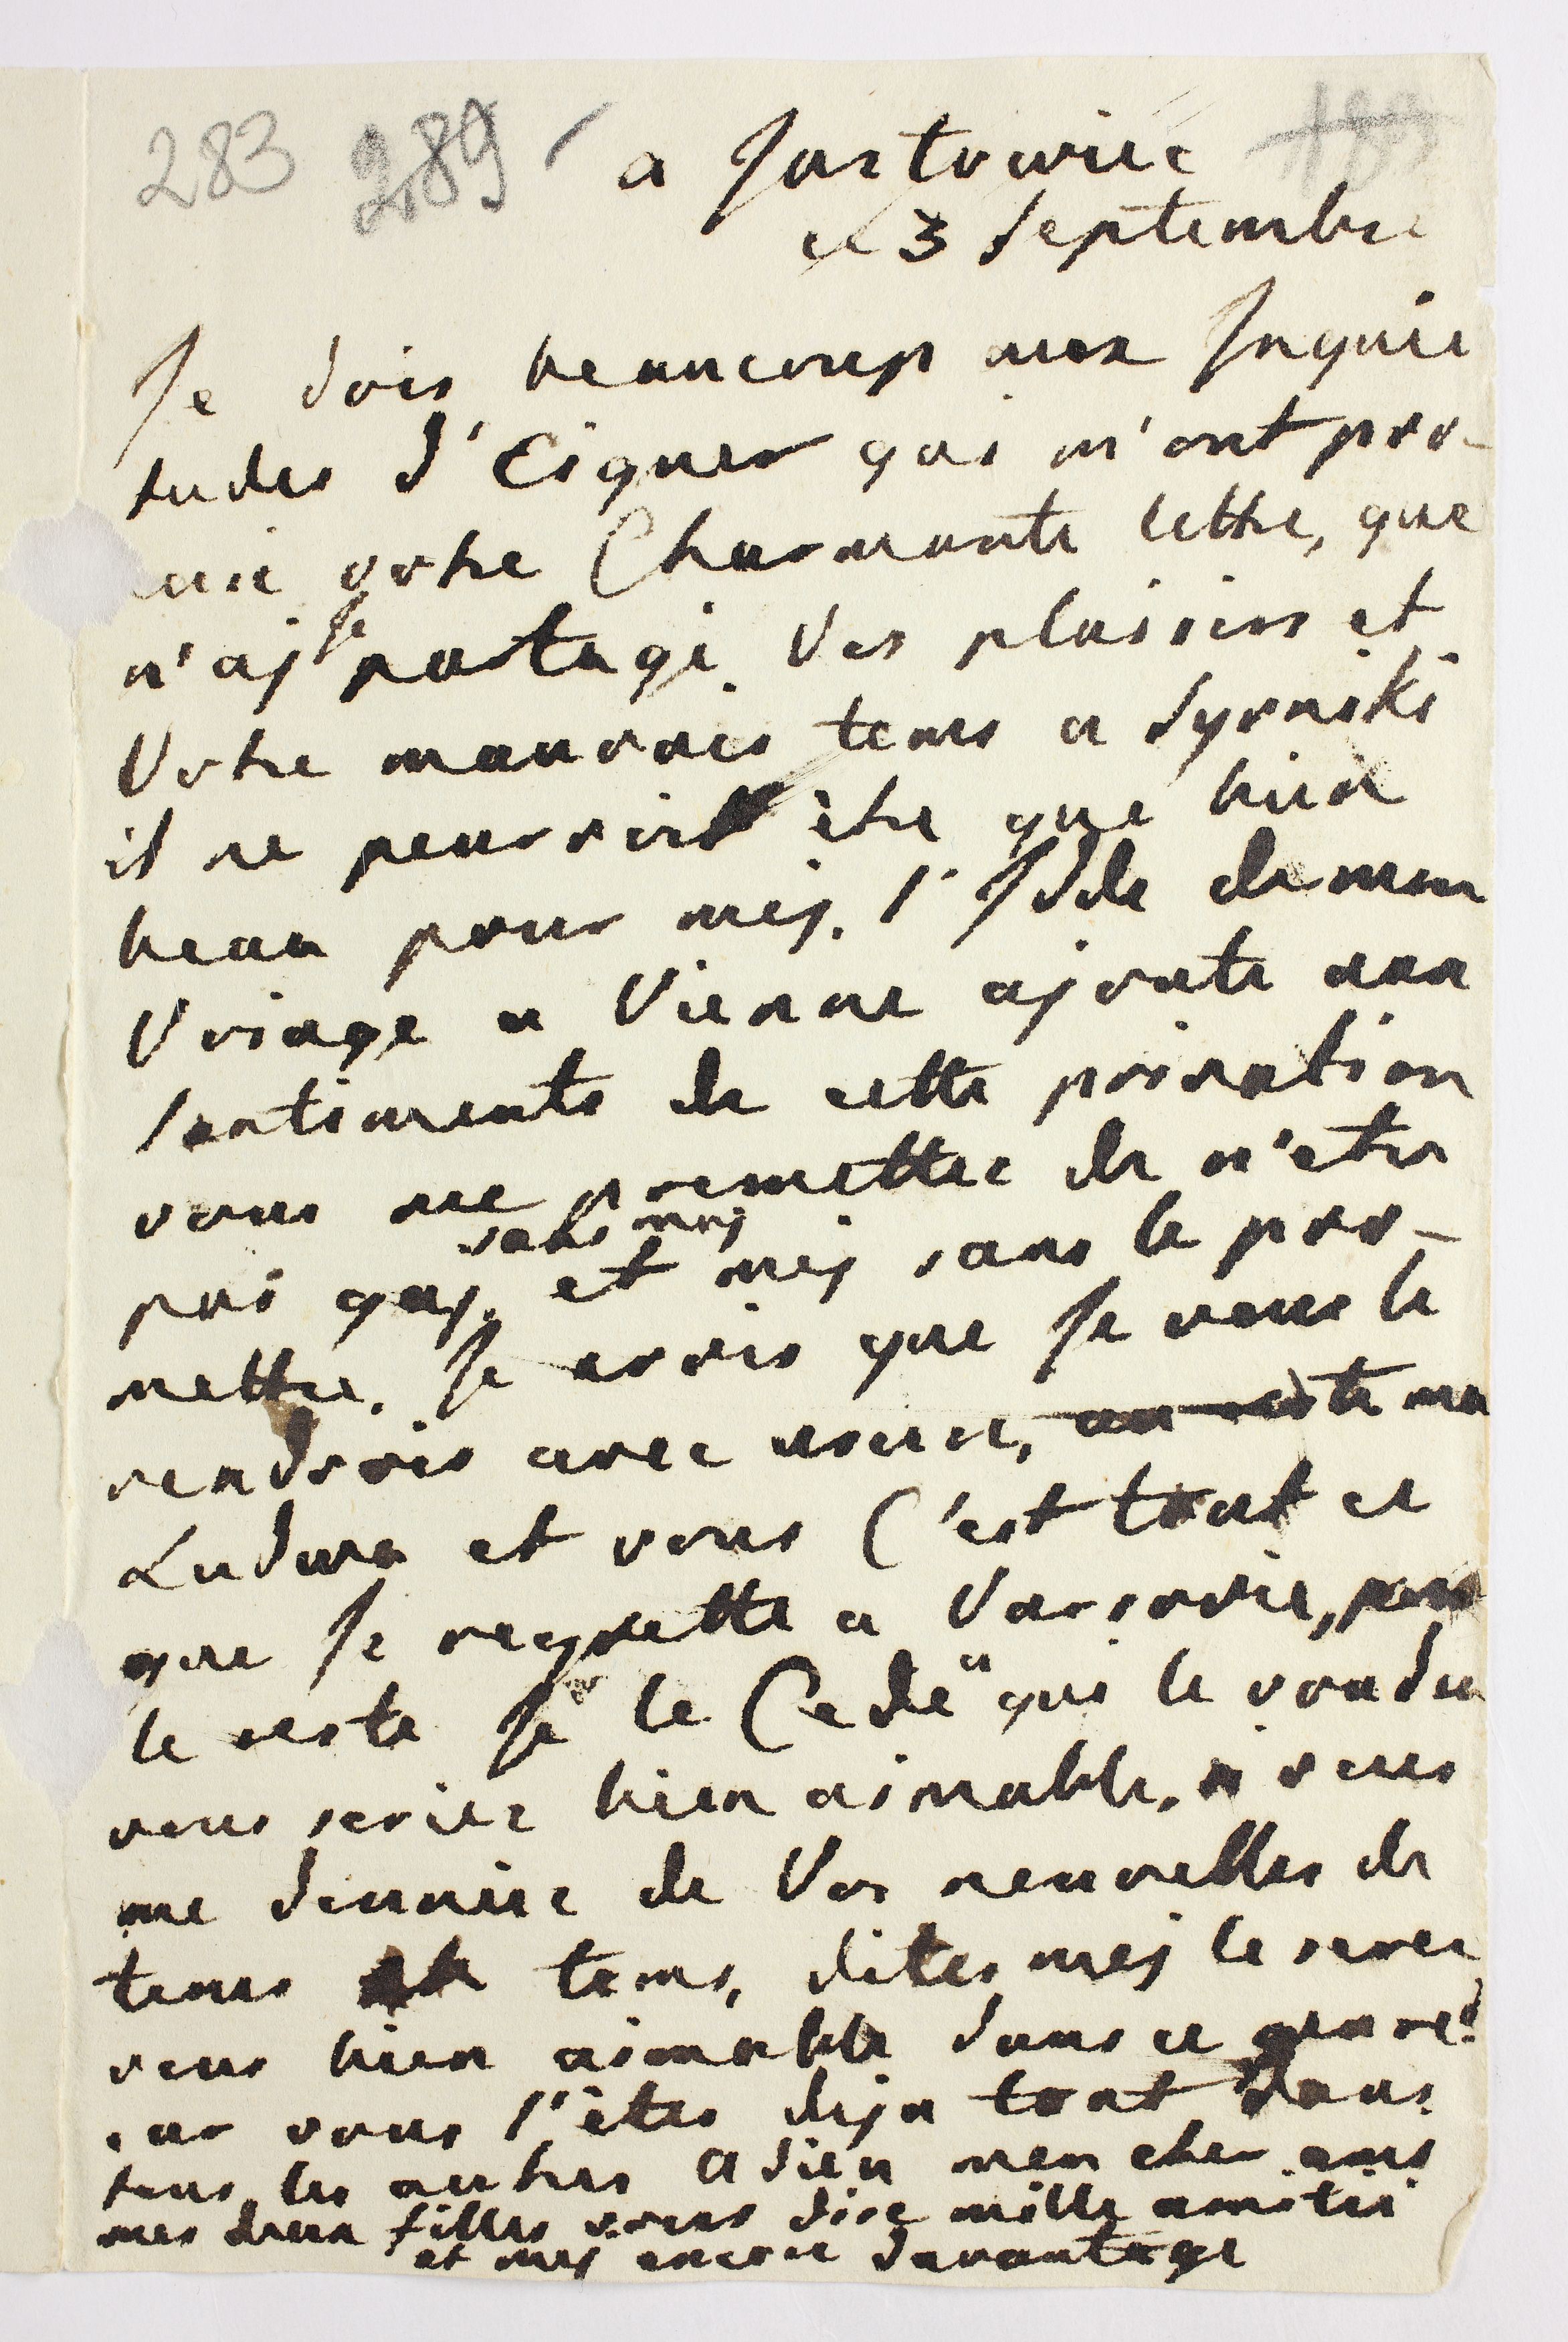 283 289 a Jartowiec
ce 3 Septembre
Je dois beaucoup aux Inquie
tudes d'Eigner qui m'ont pro-
curé votre Charmante lettre, que
n'aj Je partagé Ves plaisirs et
Votre mauvais tems a Syroniki
il ne pouvoit être que bien
beau pour mej. l'Idde de mon
Voiage a Vienne ajoute aux
sentiments de cette privation
vous me promettez de n'etre
pas gay sans moj et mej sans le pro-
mettre. Je crois que Je vous le
rendrois avec usure, ma
Ludwa et vous C'est tout ce
que Je regrette a Varsovie, pour
le reste Je le Cede a qui le voudra
vous seriez bien aimable, si vous
me donniez de Vos nouvelles de
tems en tems, dites mej le serez
vous bien aimable dans ce genre?
car vous l'êtes deja tout dans
tous les autres Adieu mon cher ami
mes deux filles vous dise mille amitié
et mej encore davantage